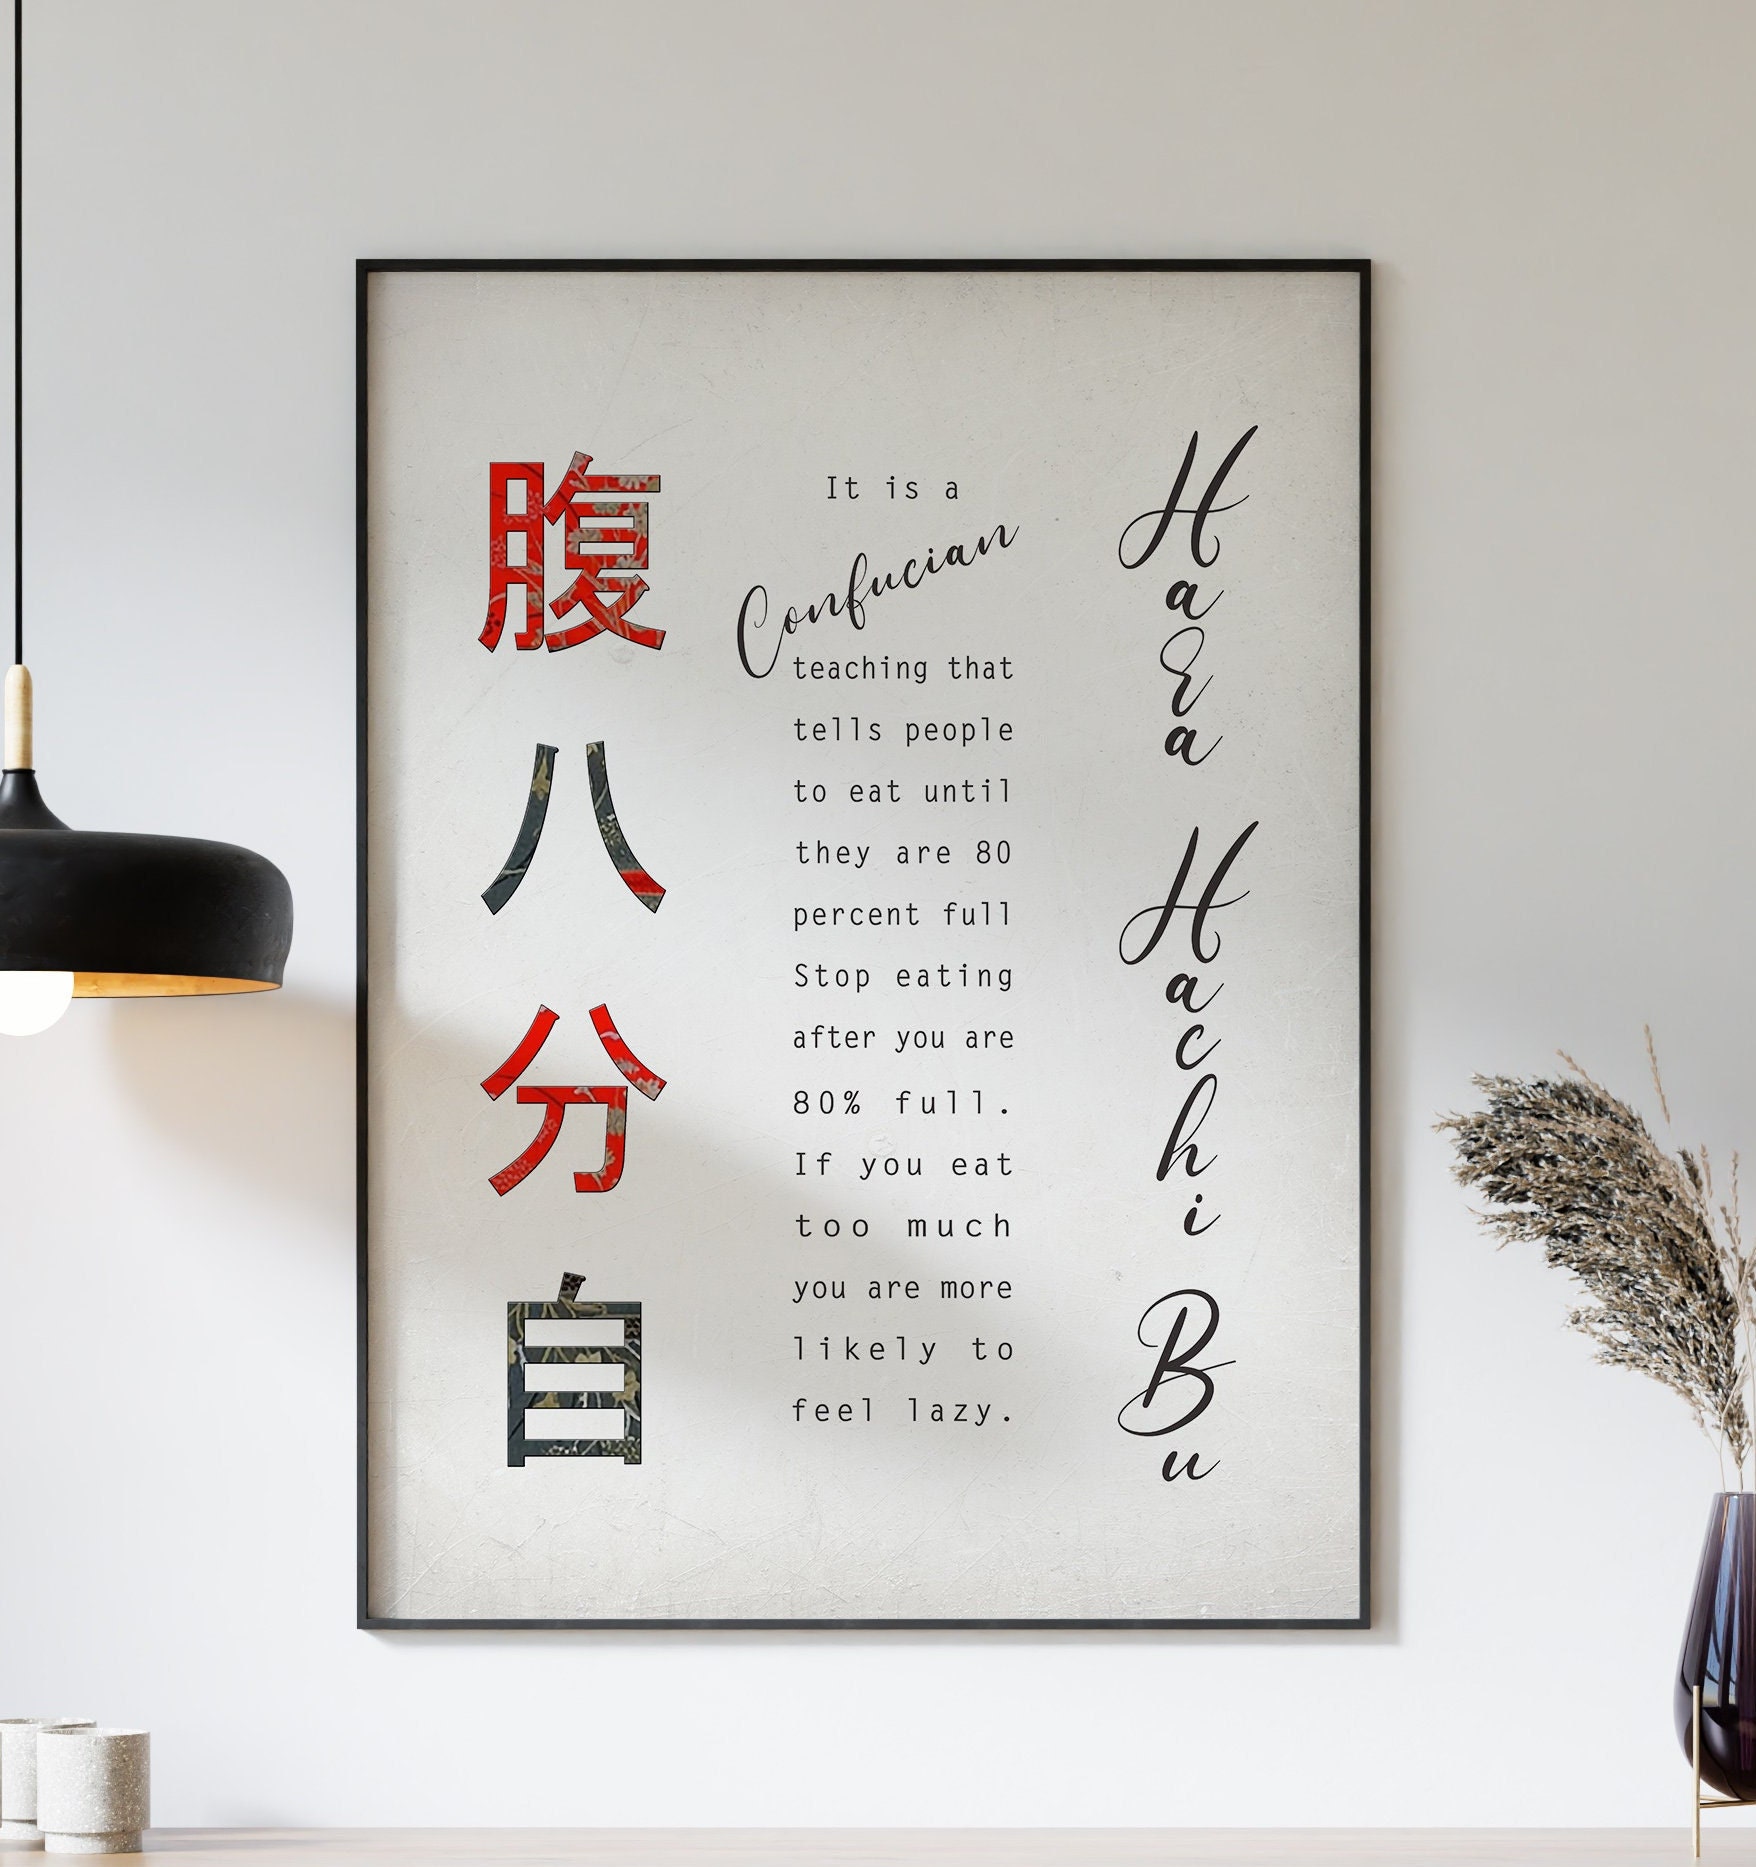 腹
八
分
自
It is a
Confucian
teaching that
tells people
to eat until
they are 80
percent full
Stop eating
after you are
80% full.
If you eat
too much
you are more
likely to
feel lazy.
Hara
Hachi
Bu